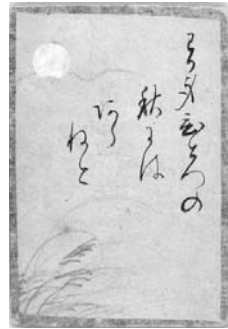 わか身ひとつの
秋には
あら
ねと